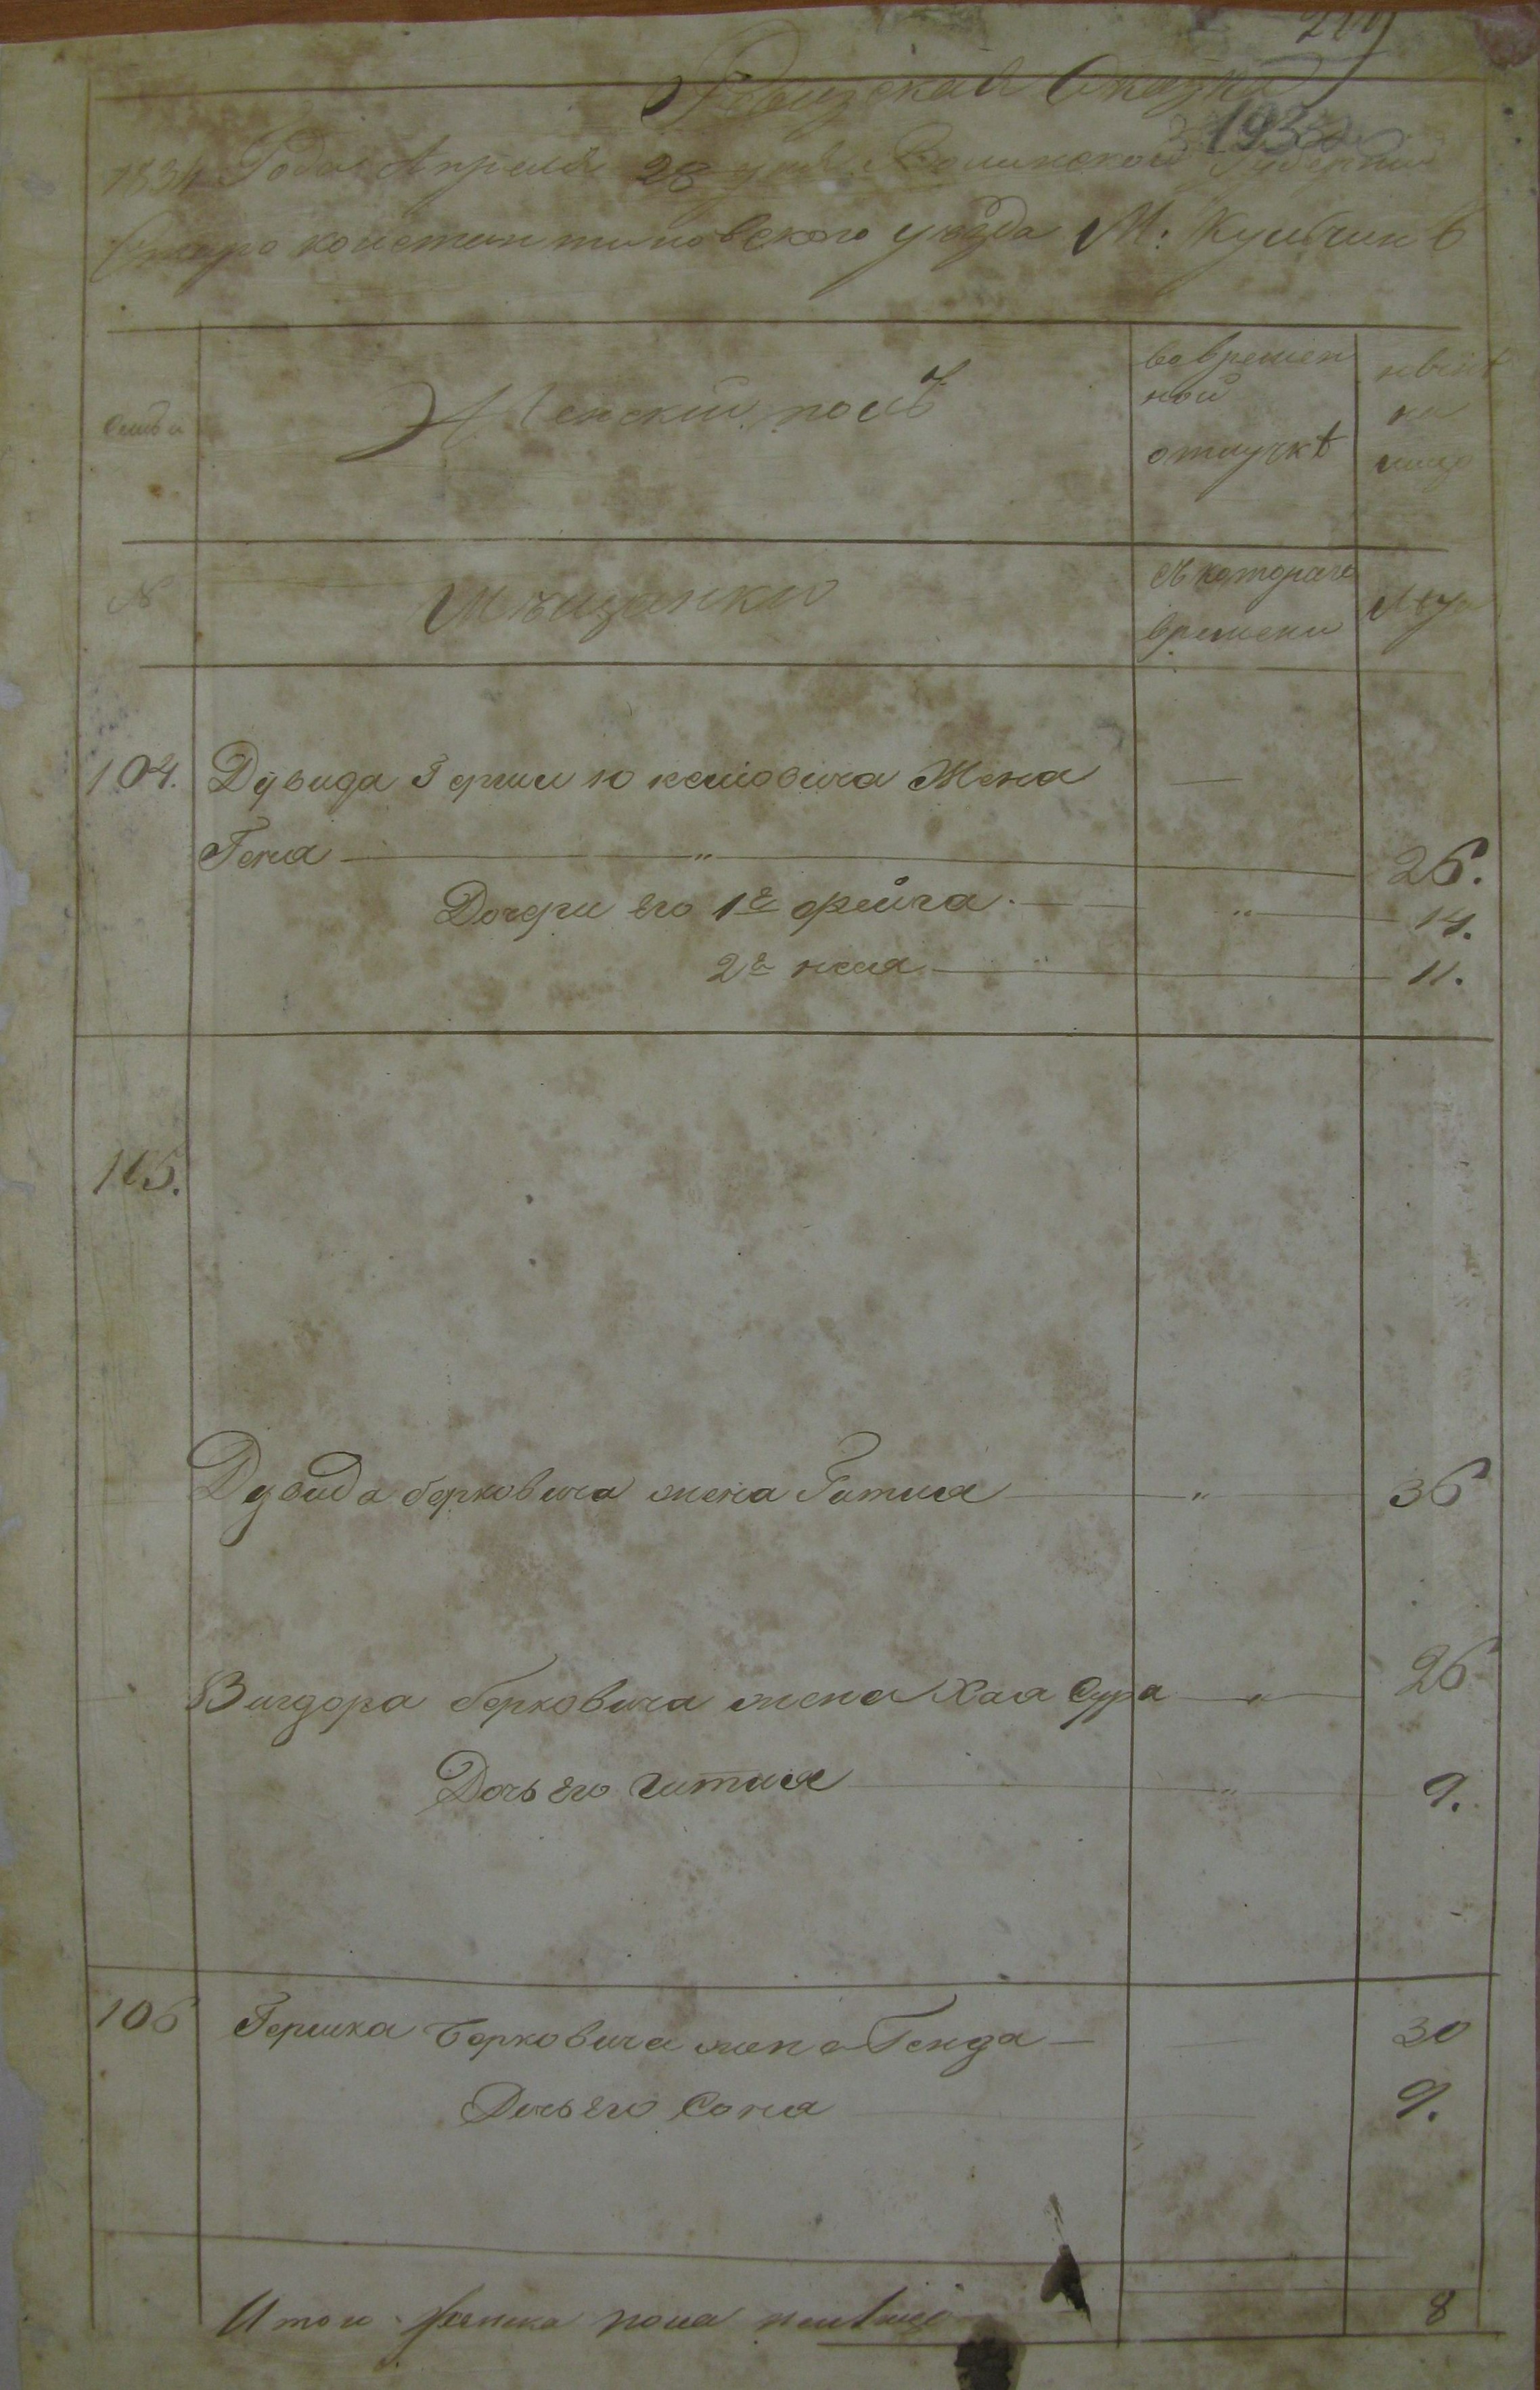 Ревизская Сказка
193
1834 Года Апреля 28 дня Волынской Губернии
Старо константиновского уезда М: Кульчин
Семьи
Женский полъ
во времен
ной
отлучкѣ
нынѣ
на
лицо
№
Мѣщанки
Съ котораго
времени
Лѣта
104. Дувида Гершковича Жена —
Геня — „ — 26.
Дочери его 1я фейга — „ — 14.
2я неся — „ — 11.
105.
Дувида берковича жена Гитля — „ — 36
Вигдора берковича жена Хая Сура — „ — 26
Дочь его гитля — „ — 9.
106 Гершка Берковича жена Генда — 30
Дочь его Соня — 9.
Итого женска пола налицо 8